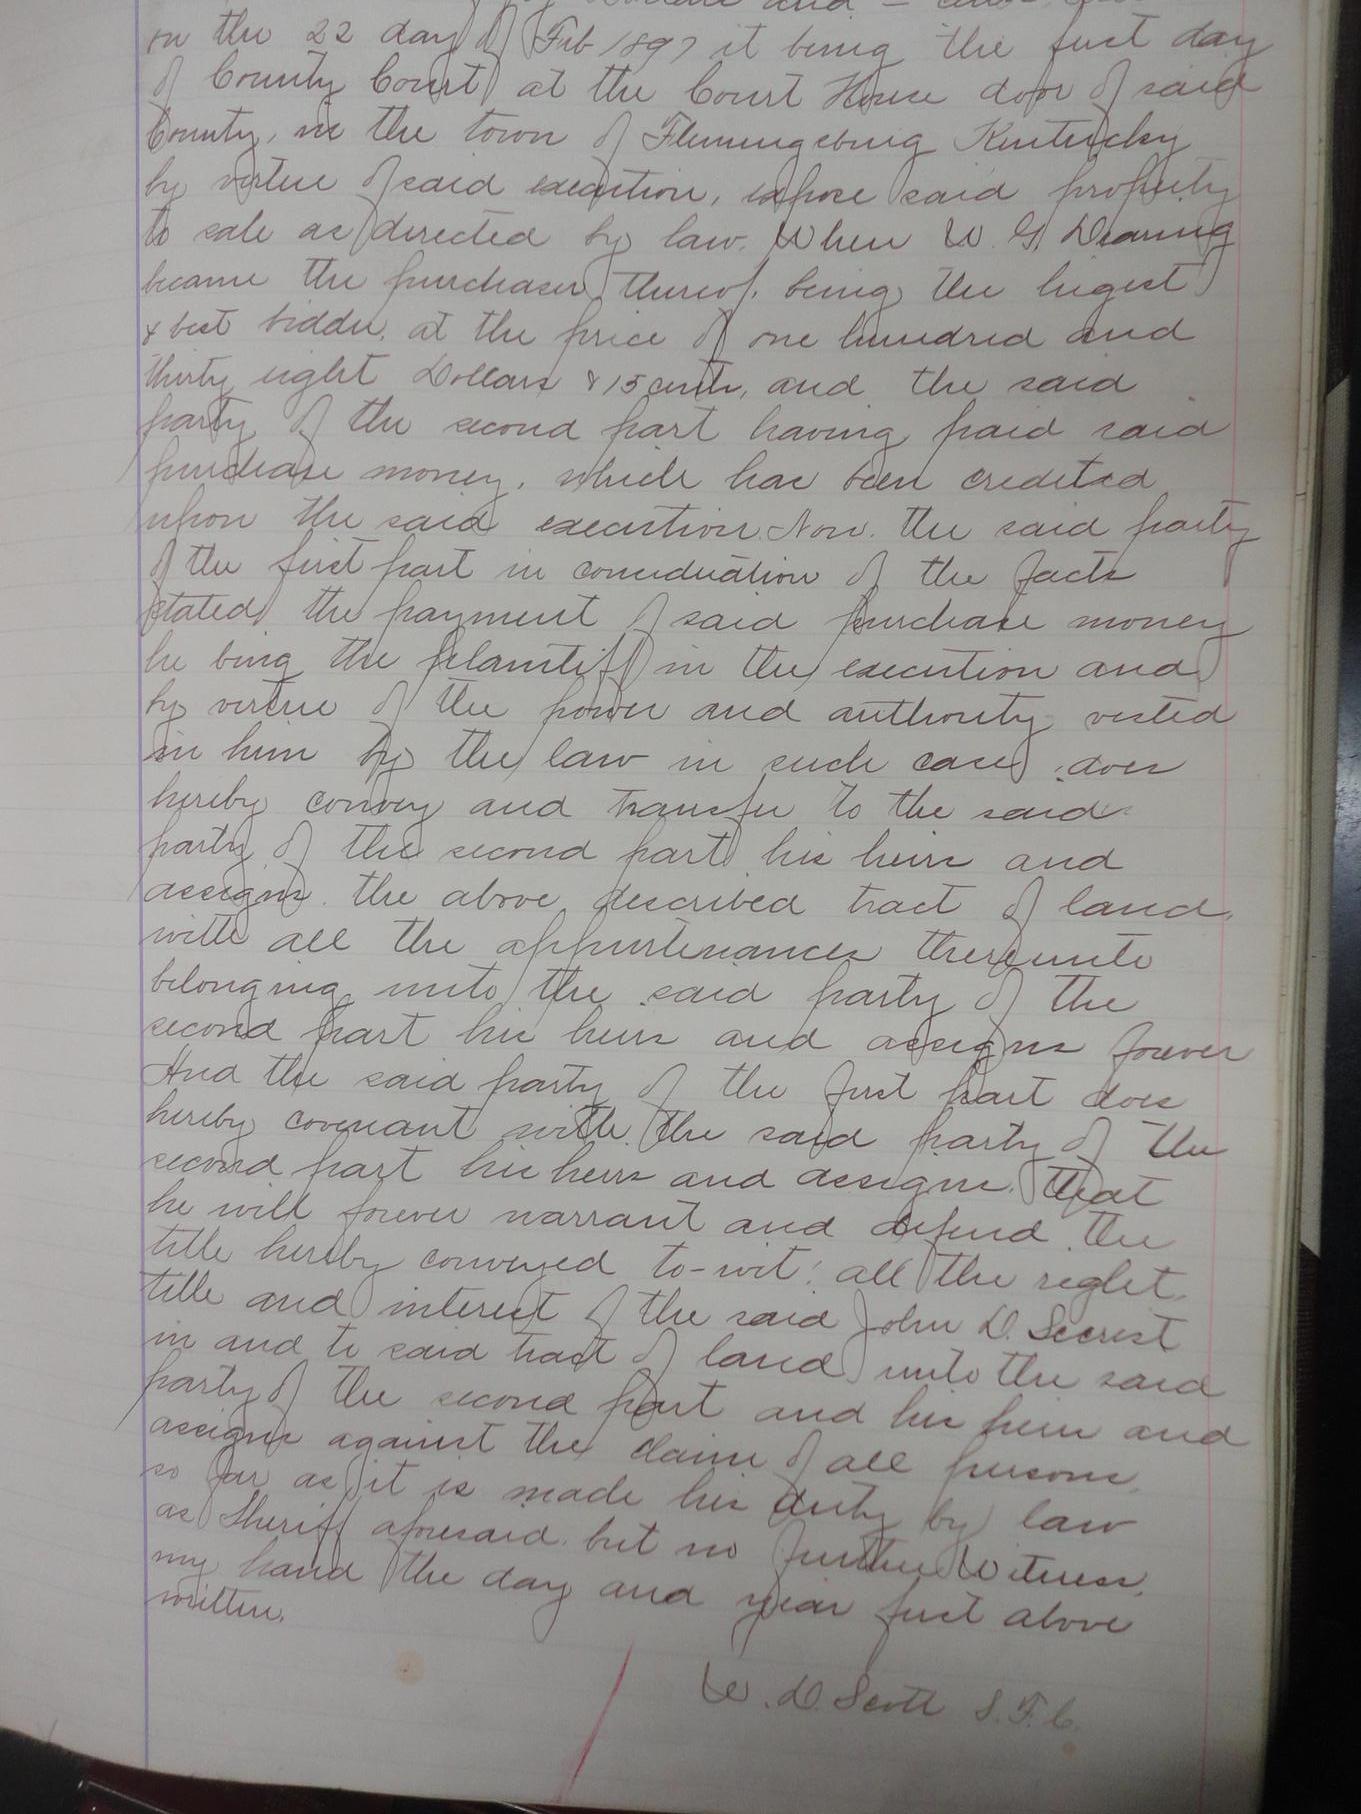 on the 22 day of Feb 1897 it being the first day
of County Court at the Court House door of said
County, in the town of Flemingsburg Kentucky
by virtue of said execution, expose said property
to sale as directed by law. When W. G. Dearing
became the purchaser thereof, being the higest
& best bidder, at the price of one hundred and
thirty eight Dollars & 15 cents, and the said
party of the second part having paid said
purchase money, which has been credited
upon the said execution. Now, the said party
of the first part in consideration of the facts
stated the payment of said purchase money
he being the plaintiff in the execution and
by virtue of the power and authority vested
in him by the law in such cases does
hereby convey and transfer to the said
party of the second part his heirs and
assigns the above described tract of land,
with all the appurtenances thereunto
belonging unto the said party of the
second part his heirs and assigns forever
And the said party of the first part does
hereby covenant with the said party of the
second part his heirs and assigns that
he will forever warrant and defend the
title hereby conveyed to-wit: all the right
title and interest of the said John D. Secrest
in and to said tract of land unto the said
party of the second part and his heirs and
assigns against the claims of all persons,
so far as it is made his duty by law
as Sheriff aforesaid but no further Witness,
my hand the day and year first above
written.
W. D. Scott S.F.C.